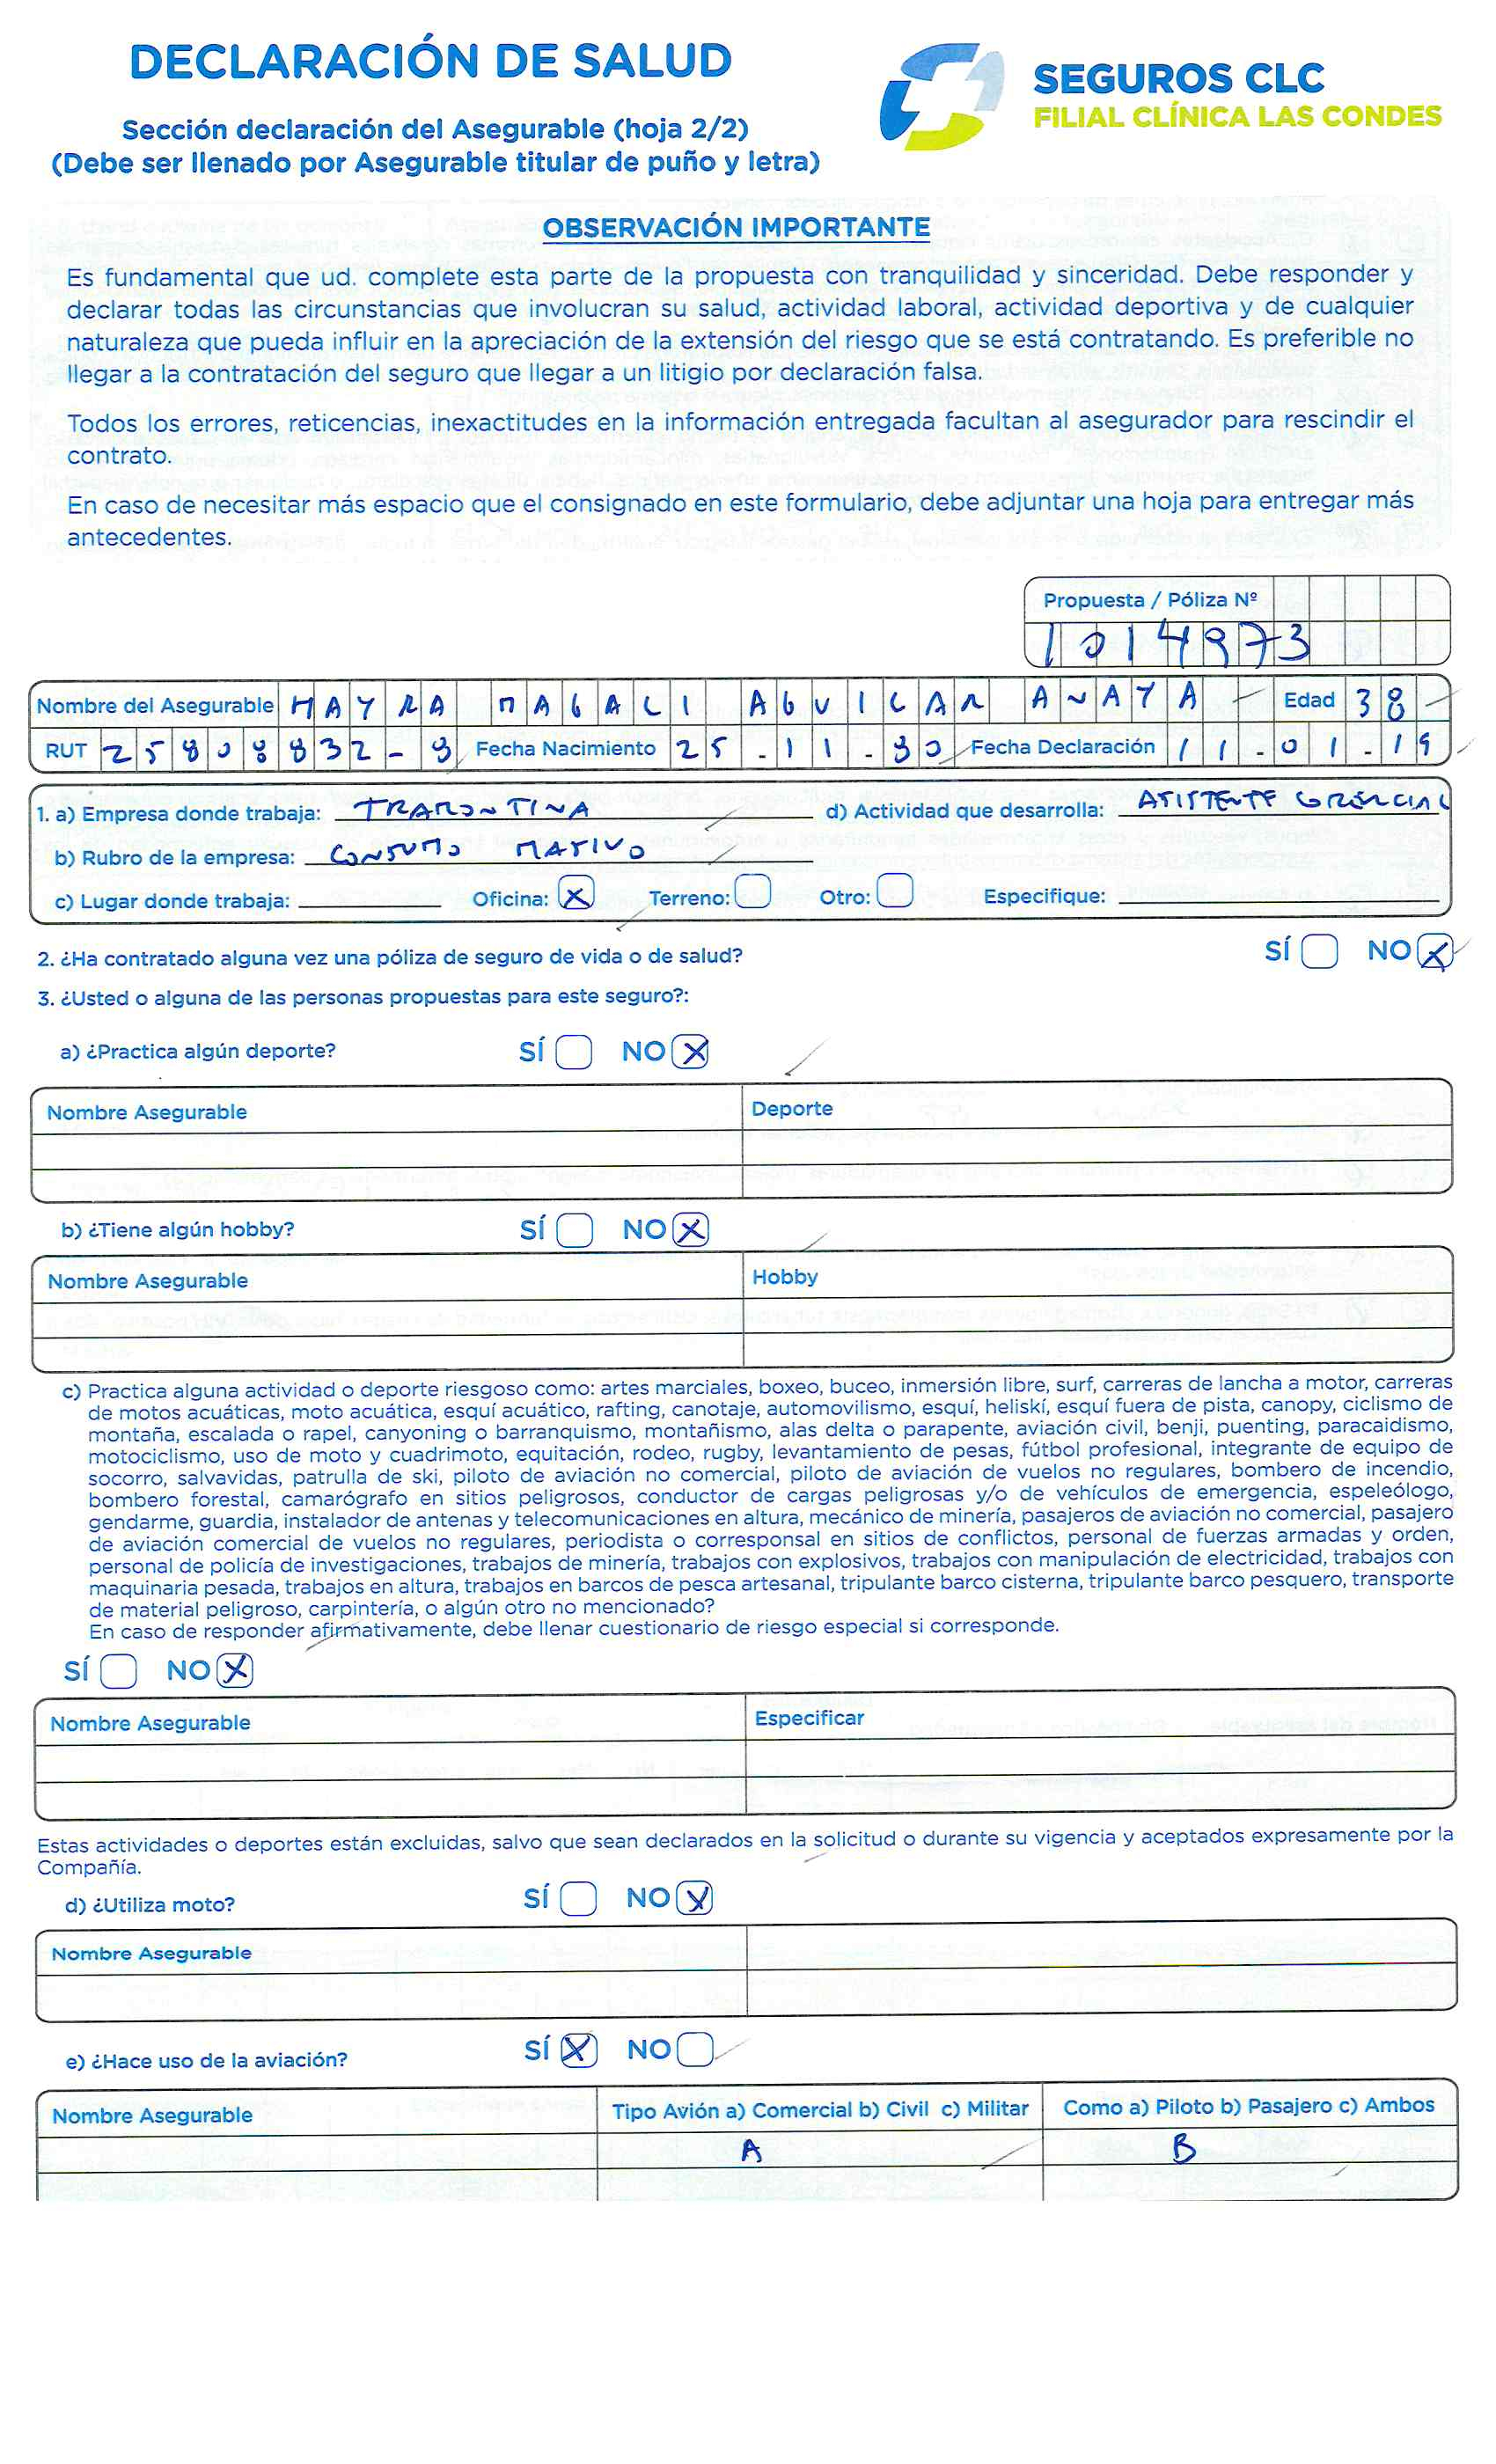 DECLARACIÓN DE SALUD
SEGUROS CLC
FILIAL CLÍNICA LAS CONDES
Sección declaración del Asegurable (hoja 2/2)
(Debe ser llenado por Asegurable titular de puño y letra)
OBSERVACIÓN IMPORTANTE
Es fundamental que ud. complete esta parte de la propuesta con tranquilidad y sinceridad. Debe responder y
declarar todas las circunstancias que involucran su salud, actividad laboral, actividad deportiva y de cualquier
naturaleza que pueda influir en la apreciación de la extensión del riesgo que se está contratando. Es preferible no
llegar a la contratación del seguro que llegar a un litigio por declaración falsa.
Todos los errores, reticencias, inexactitudes en la información entregada facultan al asegurador para rescindir el
contrato.
En caso de necesitar más espacio que el consignado en este formulario, debe adjuntar una hoja para entregar más
antecedentes.
Propuesta / Póliza Nº
1014973
Nombre del Asegurable MAYRA MAGALI AGUILAR ANAYA Edad 38
RUT 25808832-9 Fecha Nacimiento 25-11-80 Fecha Declaración 11-01-19
1. a) Empresa donde trabaja: TRAMONTINA d) Actividad que desarrolla: ASISTENTE GERENCIAL
b) Rubro de la empresa: CONSUMO MASIVO
c) Lugar donde trabaja: Oficina: X Terreno: Otro: Especifique:
2. ¿Ha contratado alguna vez una póliza de seguro de vida o de salud? SÍ NO X
3. ¿Usted o alguna de las personas propuestas para este seguro?:
a) ¿Practica algún deporte? SÍ NO X
Nombre Asegurable Deporte
b) ¿Tiene algún hobby? SÍ NO X
Nombre Asegurable Hobby
c) Practica alguna actividad o deporte riesgoso como: artes marciales, boxeo, buceo, inmersión libre, surf, carreras de lancha a motor, carreras
de motos acuáticas, moto acuática, esquí acuático, rafting, canotaje, automovilismo, esquí, heliskí, esquí fuera de pista, canopy, ciclismo de
montaña, escalada o rapel, canyoning o barranquismo, montañismo, alas delta o parapente, aviación civil, benji, puenting, paracaidismo,
motociclismo, uso de moto y cuadrimoto, equitación, rodeo, rugby, levantamiento de pesas, fútbol profesional, integrante de equipo de
socorro, salvavidas, patrulla de ski, piloto de aviación no comercial, piloto de aviación de vuelos no regulares, bombero de incendio,
bombero forestal, camarógrafo en sitios peligrosos, conductor de cargas peligrosas y/o de vehículos de emergencia, espeleólogo,
gendarme, guardia, instalador de antenas y telecomunicaciones en altura, mecánico de minería, pasajeros de aviación no comercial, pasajero
de aviación comercial de vuelos no regulares, periodista o corresponsal en sitios de conflictos, personal de fuerzas armadas y orden,
personal de policía de investigaciones, trabajos de minería, trabajos con explosivos, trabajos con manipulación de electricidad, trabajos con
maquinaria pesada, trabajos en altura, trabajos en barcos de pesca artesanal, tripulante barco cisterna, tripulante barco pesquero, transporte
de material peligroso, carpintería, o algún otro no mencionado?
En caso de responder afirmativamente, debe llenar cuestionario de riesgo especial si corresponde.
SÍ NO X
Nombre Asegurable Especificar
Estas actividades o deportes están excluidas, salvo que sean declarados en la solicitud o durante su vigencia y aceptados expresamente por la
Compañía.
d) ¿Utiliza moto? SÍ NO X
Nombre Asegurable
e) ¿Hace uso de la aviación? SÍ X NO
Nombre Asegurable Tipo Avión a) Comercial b) Civil c) Militar Como a) Piloto b) Pasajero c) Ambos
A B